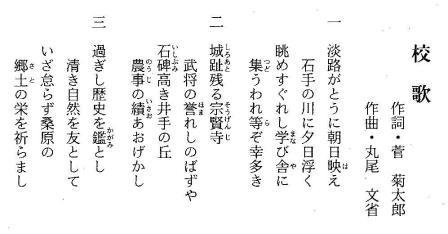 校歌
作詞・菅 菊太郎
作曲・丸尾 文省
一 淡路がとうに朝日映え
石手の川に夕日浮く
眺めすぐれし学び舎に
集うわれ等ぞ幸多き
二 城趾残る宗賢寺
武将の誉れしのばずや
石碑高き井手の丘
農事の績あおげかし
三 過ぎし歴史を鑑とし
清き自然を友として
いざ怠らず桑原の
郷土の栄を祈らまし